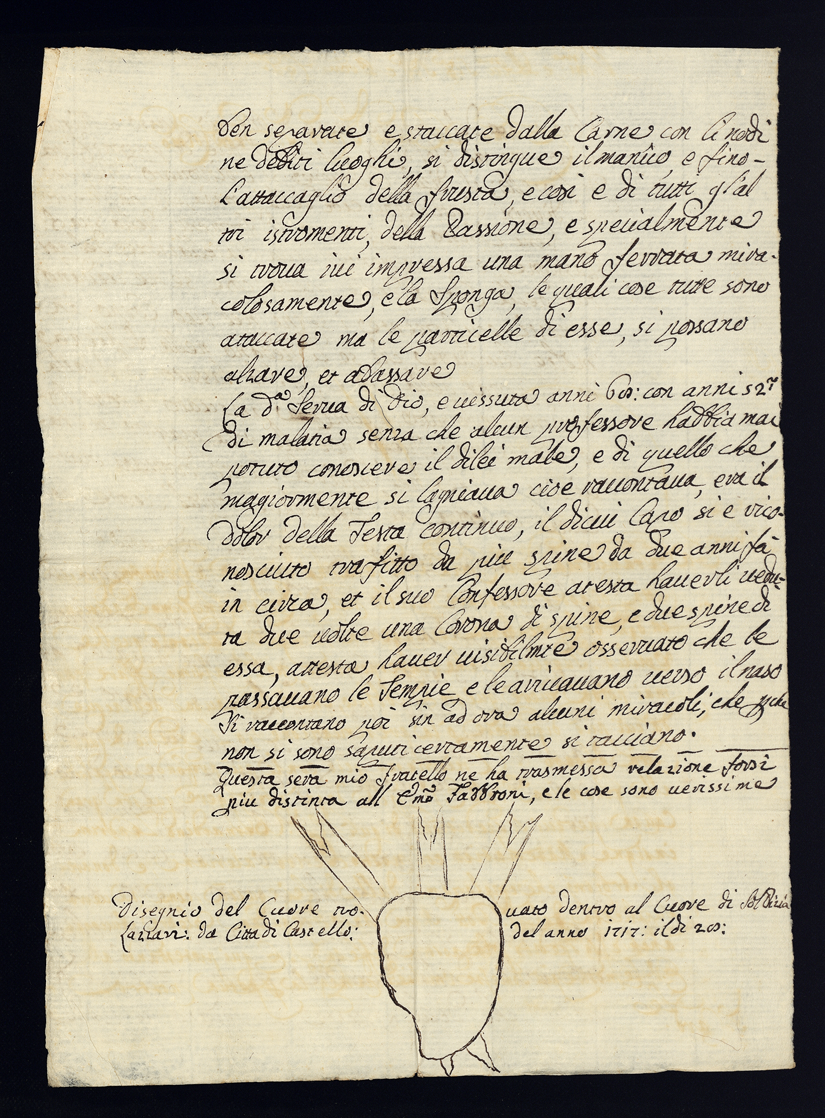 ben separate e staccate dalla Carne con li nodi
ne debiti luoghi, si distingue il manico e fino-
l'attaccaglio della frusta, e cosi e di tutti gl'al
tri istromenti, della Passione, e specialmente
si trova ivi impressa una mano ferrata mira-
colosamente, e la sponga, le quali cose tutte sono
ataccate ma le particelle di esse, si possano
alzare, et abassare
La d.ª Serva di Dio, e vissuta anni 60: con anni 52
di malatia senza che alcun professore habbia mai
potuto conoscere il dilei male, e di quello che
magiormente si lagniava cioe raccontava, era il
dolor della Testa continuo, il dicui Capo si e rico-
nosciuto trafitto da piu spine da due anni fà
in circa, et il suo Confessore atesta haverli vedu-
ta due volte una Corona di spine, e due spine di
essa, attesta haver visibilmte osservato che le
passavano le Tempie e le arrivavano verso il naso
Si raccontano poi sin ad ora alcuni miracoli, che
non si sono saputi certamente si tacciano.
Questa sera mio fratello ne ha trasmessa relazione forsi
piu distinta all Emo Fabbroni, e le cose sono verissime
Disegnio del Cuore tro- vato dentro al Cuore di
Lazzari: da Citta di Castello: del anno 1717: il di 20: